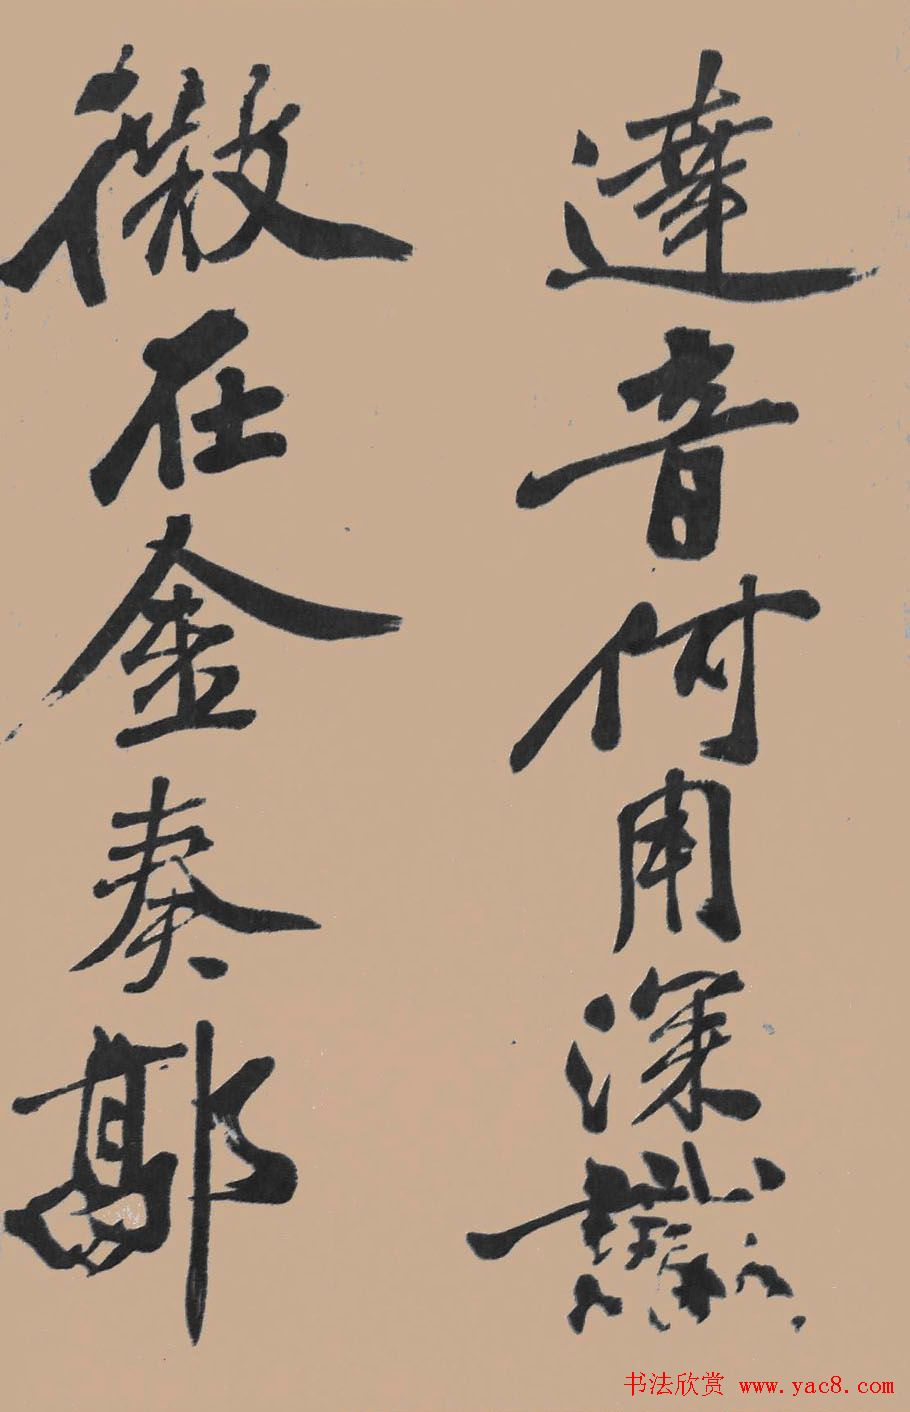 達音何用深識
微在金奏郭
书法欣赏 www.yac8.com